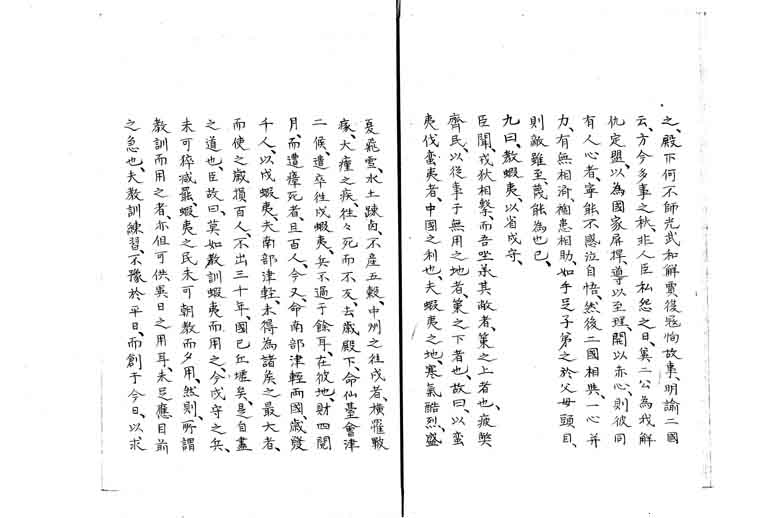 之、殿下何不師光武和解賈復寇恂故事、明諭二國
云、方今多事之秋、非人臣私怨之日、冀二公為我解
仇定盟、以為國家屏捍、導以至理、開以赤心、則彼同
有人心者、寧能不感泣自悟、然後二國相與、一心并
力、有無相濟、禍患相助、如手足子弟之於父母頭目、
則敵雖至蔑能為也已、
九曰、教蝦夷、以省戍守、
臣聞、戎狄相擊、而吾坐承其敝者、策之上者也、疲弊
齊民、以從事于無用之地者、策之下者也、故曰、以蠻
夷伐蠻夷者、中國之利也、夫蝦夷之地、寒氣酷烈、盛
夏飛雪、水土疎鹵、不產五穀、中州之往戍者、橫罹皸
瘃、大瘇之疾、往々死而不反、去歲殿下、命仙臺會津
二侯、遣卒往戍蝦夷、兵不過千餘耳、在彼地、財四閱
月、而遭瘴死者、且百人、今又、命南部津輕兩國、歲發
千人、以戍蝦夷、夫南部津輕、未得為諸侯之最大者、
而使之歲損百人、不出三十年、國已丘墟矣、是自盡
之道也、臣故曰、莫如教訓蝦夷而用之、今戍守之兵、
未可猝減罷、蝦夷之民未可朝教而夕用、然則、所謂
教訓而用之者、亦但可供異日之用耳、未足應目前
之急也、夫教訓練習、不豫於平日、而創于今日、以求